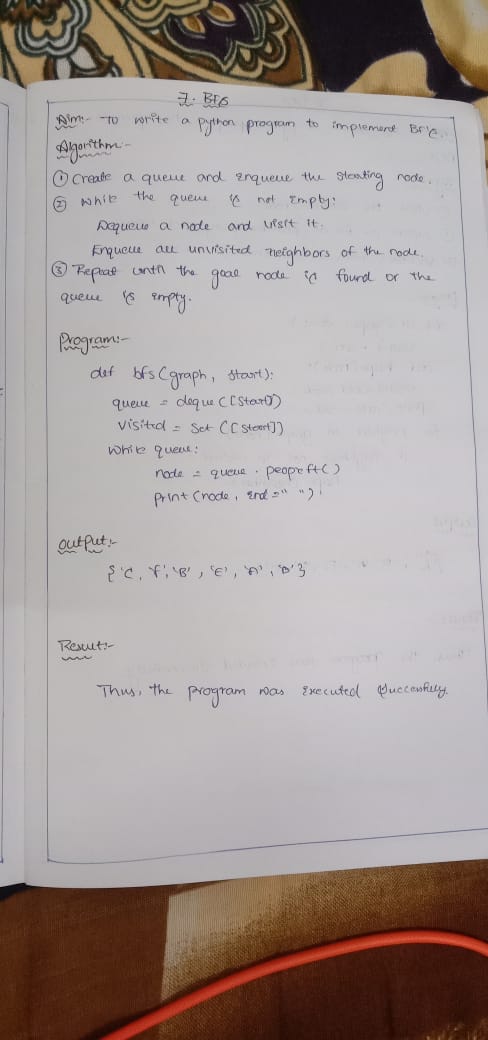 7. BFS
Aim:- To write a python program to implement BFS.
Algorithm:-
① Create a queue and enqueue the starting node.
② While the queue is not Empty:
Dequeue a node and visit it.
Enqueue all unvisited neighbors of the node.
③ Repeat until the goal node is found or the
queue is empty.
Program:-
def bfs(graph, start):
queue = deque([start])
visited = set([start])
while queue:
node = queue.popleft()
print(node, end=" ")
output:-
{'C', 'F', 'B', 'E', 'A', 'D'}
Result:-
Thus, the program was executed successfully.